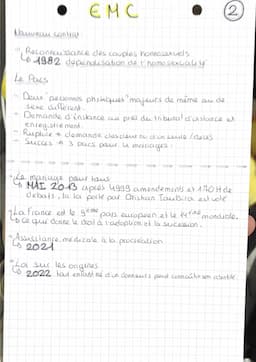 EMC
2
Nouveau contrat
- Reconnaissance des couples homosexuels
↳ 1982 dépénalisation de l'homosexualité
Le Pacs
- Deux personnes physiques majeurs de même ou de
sexe différent.
- Demande d'instance au près du tribunal d'instance et
enregistrement.
- Rupture = demande d'un
- Succès = 3 pacs pour 4 mariages.
- Le mariage pour tous
↳ MAI 2013 après 4999 amendements et 170 H de
débats, la loi porté par Christian Taubira est voté
- La France est le 9ème pays européen et le 14ème mondiale.
↳ Ce qui donne le droit à l'adoption et la succession.
- Assistance médicale à la procréation.
↳ 2021
- Loi sur les origines
↳ 2022 tout enfant né d'un donneurs peut connaître son identité.